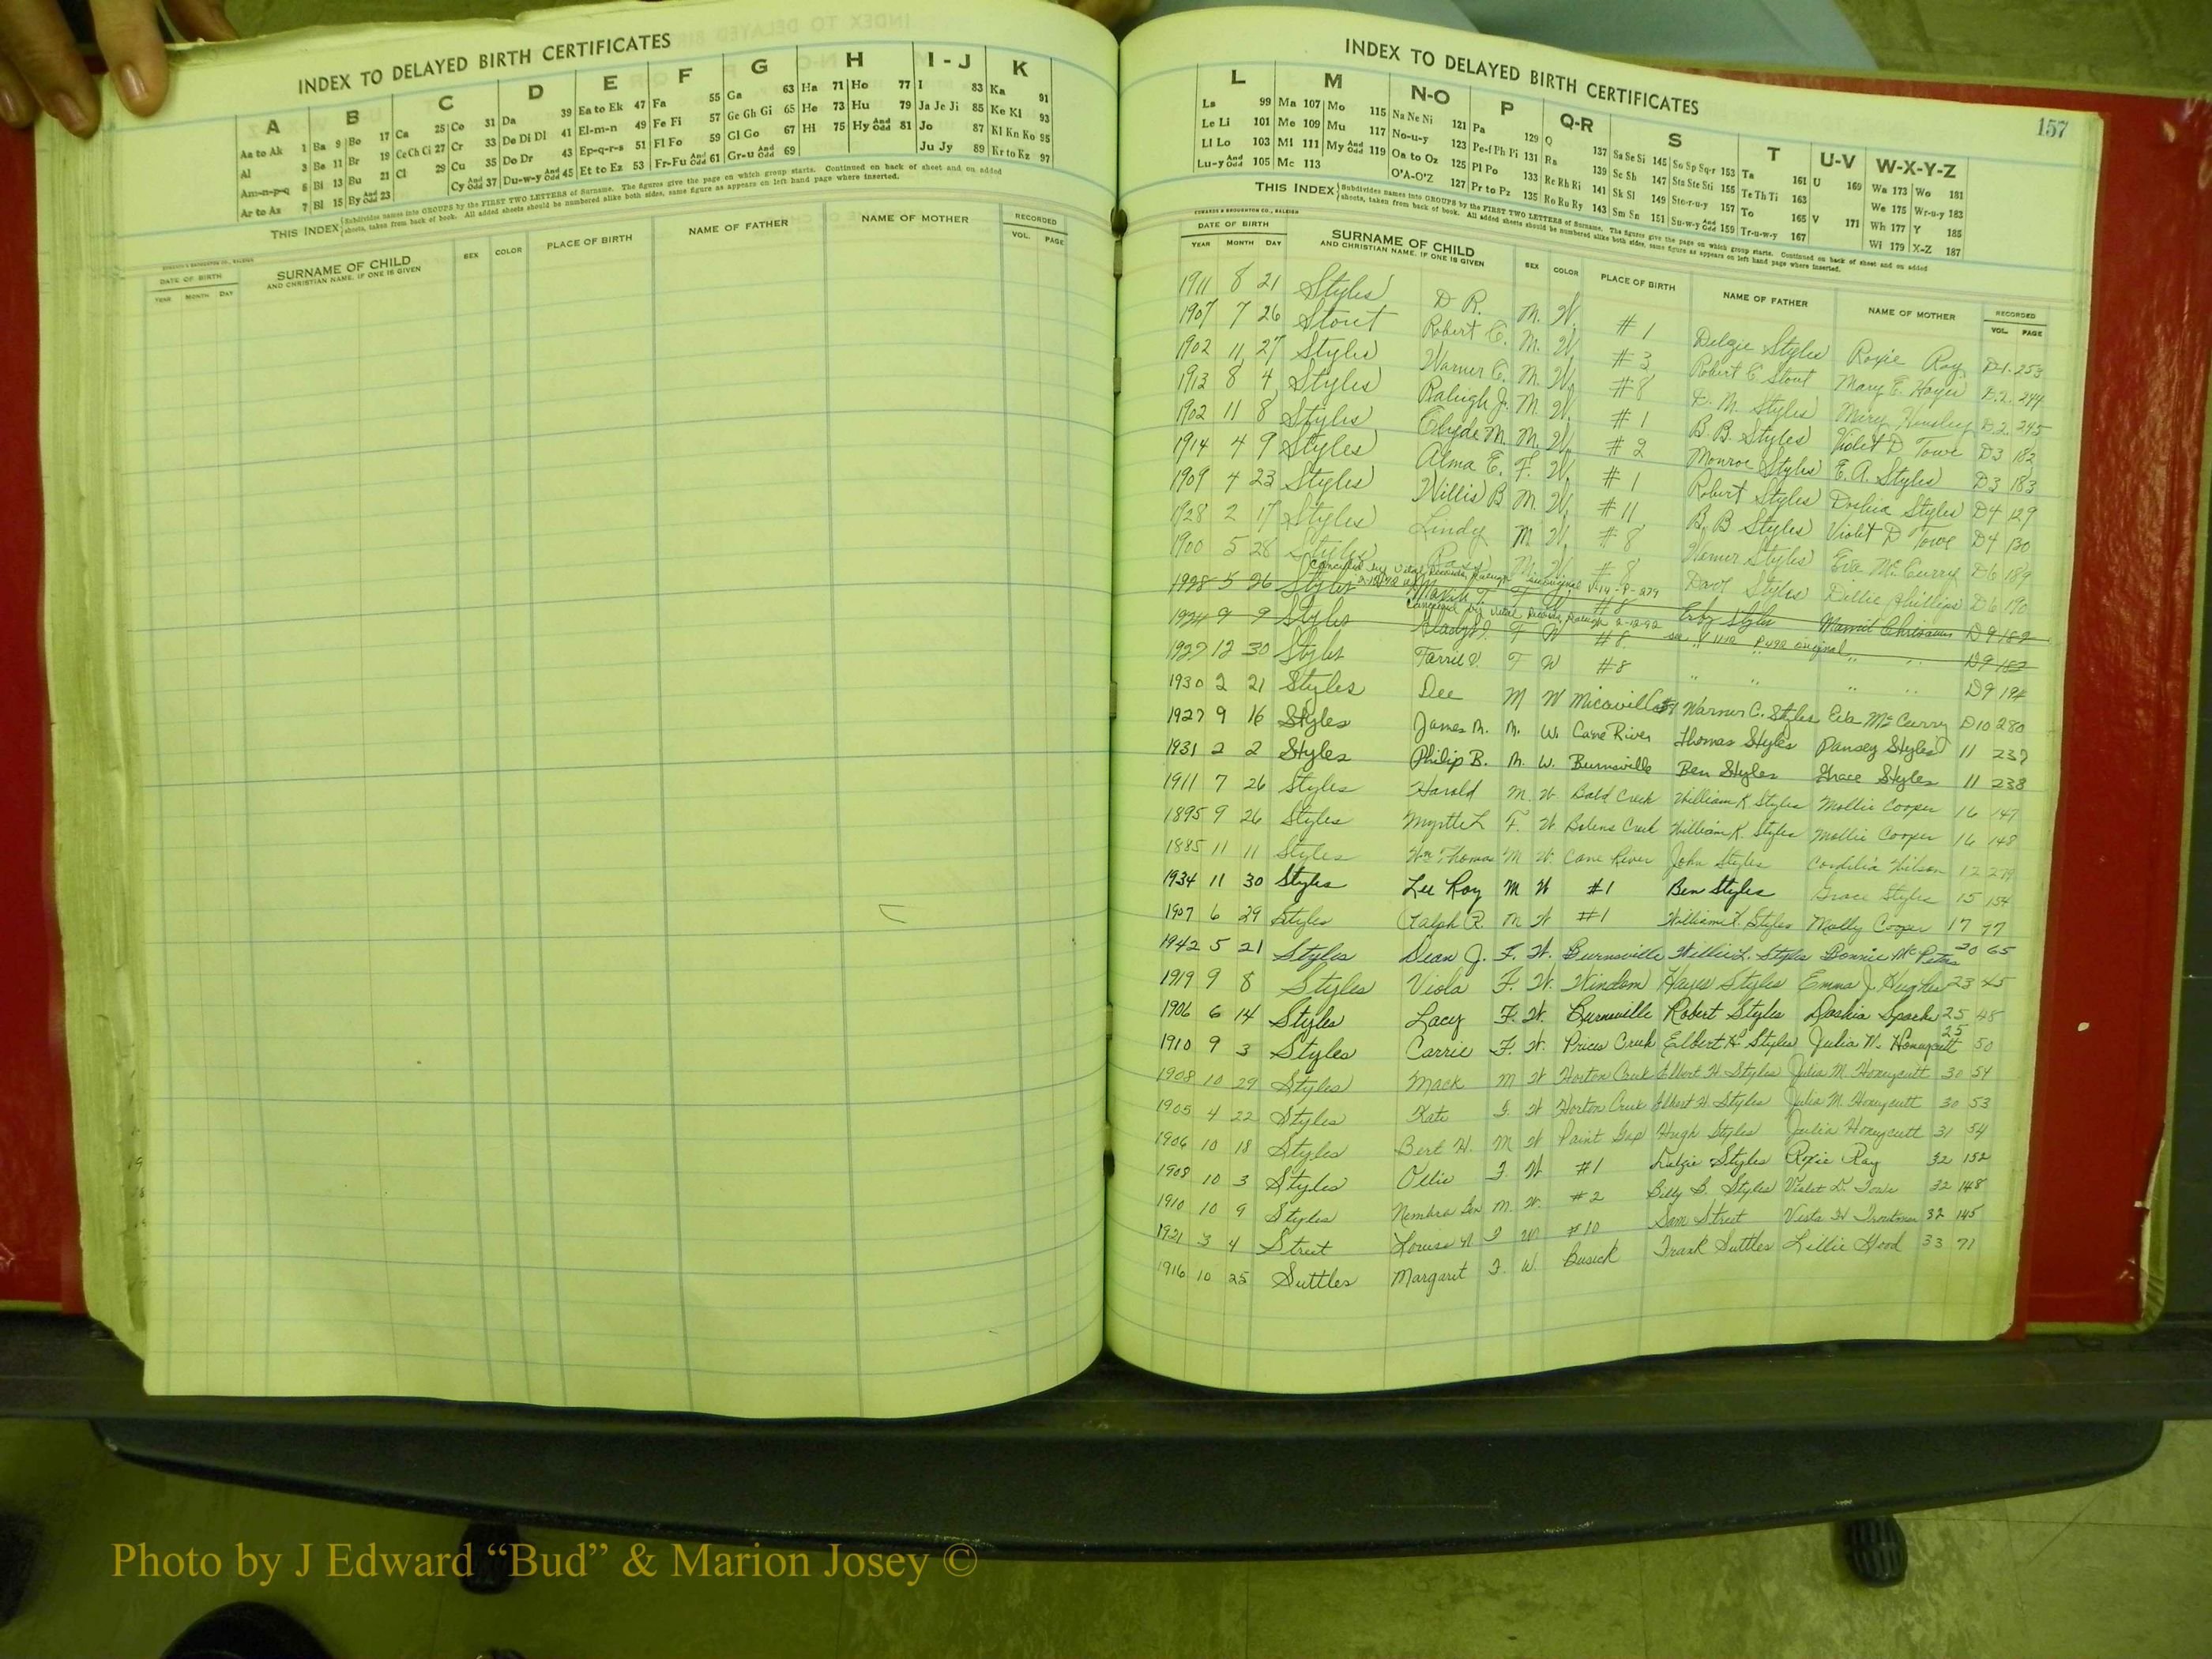 INDEX TO DELAYED BIRTH CERTIFICATES
A B C D E F G H I - J K
Aa to Ak 1 Ba 9 Bo 17 Ca 25 Co 31 Da 39 Ea to Ek 47 Fa 55 Ga 63 Ha 71 Ho 77 I 83 Ka 91
Al 3 Be 11 Br 19 Ce Ch Ci 27 Cr 33 De Di Dl 41 El-m-n 49 Fe Fi 57 Ge Gh Gi 65 He 73 Hu 79 Ja Je Ji 85 Ke Kl 93
Am-n-p-q 5 Bl 13 Bu 21 Cl 29 Cu 35 Do Dr 43 Ep-q-r-s 51 Fl Fo 59 Gl Go 67 Hi 75 Hy And Odd 81 Jo 87 Kl Kn Ko 95
Ar to Az 7 Bl 15 By And Odd 23 Cy And Odd 37 Du-w-y And Odd 45 Et to Ez 53 Fr-Fu And Odd 61 Gr-u And Odd 69 Ju Jy 89 Kr to Kz 97
THIS INDEX Subdivides names into GROUPS by the FIRST TWO LETTERS of Surname. The figures give the page on which group starts. Continued on back of sheet and on added
sheets, taken from back of book. All added sheets should be numbered alike both sides, same figure as appears on left hand page where inserted.
EDWARDS & BROUGHTON CO., RALEIGH
DATE OF BIRTH SURNAME OF CHILD SEX COLOR PLACE OF BIRTH NAME OF FATHER NAME OF MOTHER RECORDED
YEAR MONTH DAY AND CHRISTIAN NAME, IF ONE IS GIVEN VOL. PAGE
157
INDEX TO DELAYED BIRTH CERTIFICATES
L M N-O P Q-R S T U-V W-X-Y-Z
La 99 Ma 107 Mo 115 Na Ne Ni 121 Pa 129 Q 137 Sa Se Si 145 So Sp Sq-r 153 Ta 161 U 169 Wa 173 Wo 181
Le Li 101 Me 109 Mu 117 No-u-y 123 Pe-f Ph Pi 131 Ra 139 Sc Sh 147 Sta Ste Sti 155 Te Th Ti 163 We 175 Wr-u-y 183
Ll Lo 103 Mi 111 My And Odd 119 Oa to Oz 125 Pl Po 133 Re Rh Ri 141 Sk Sl 149 Sto-r-u-y 157 To 165 V 171 Wh 177 Y 185
Lu-y And Odd 105 Mc 113 O'A-O'Z 127 Pr to Pz 135 Ro Ru Ry 143 Sm Sn 151 Su-w-y And Odd 159 Tr-u-w-y 167 Wi 179 X-Z 187
THIS INDEX Subdivides names into GROUPS by the FIRST TWO LETTERS of Surname. The figures give the page on which group starts. Continued on back of sheet and on added
sheets, taken from back of book. All added sheets should be numbered alike both sides, same figure as appears on left hand page where inserted.
EDWARDS & BROUGHTON CO., RALEIGH
DATE OF BIRTH SURNAME OF CHILD SEX COLOR PLACE OF BIRTH NAME OF FATHER NAME OF MOTHER RECORDED
YEAR MONTH DAY AND CHRISTIAN NAME, IF ONE IS GIVEN VOL. PAGE
1911 8 21 Styles D R. M. W. #1 Delzie Styles Roxie Ray D-1. 253
1907 7 26 Stout Robert E. M. W. #3 Robert E. Stout Mary E. D.2. 244
1902 11 27 Styles Warner C. M. W. #8 D. M. Styles Mary Hensley D.2. 245
1913 8 4 Styles Raleigh J. M. W. #1 B. B. Styles Violet D Towe D3 182
1902 11 8 Styles Clyde M. M. W. #2 Monroe Styles E. A. Styles D3 183
1914 4 9 Styles Alma E. F. W. #1 Robert Styles Doshia Styles D4 129
1909 4 23 Styles Willis B M. W. #11 B. B Styles Violet D Towe D4 130
1928 2 17 Styles Lindy M W. #8 Styles Eva McCurry D6 189
1900 5 28 Styles M. W. #8 Styles Dillie Phillips D6 190
Cancelled by Vital Records, Raleigh 2-12-92
1928 5 26 Styles F W #8 Styles D9 182
Cancelled by Vital Records, Raleigh 2-12-92 see original
1924 9 9 Styles Gladys F W #8 " " D9 183
1927 12 30 Styles F W #8 " " " " D9 184
1930 2 21 Styles Dee M W Micaville Warner C. Styles Eva McCurry D10 280
1927 9 16 Styles James M. M. W. Cane River Thomas Styles Pansey Styles 11 237
1931 2 2 Styles Philip B. M. W. Burnsville Ben Styles Grace Styles 11 238
1911 7 26 Styles Harold M. W. Bald Creek William K. Styles Mollie Cooper 16 147
1895 9 26 Styles Myrtle L F. W. Bolens Creek William K. Styles Mollie Cooper 16 148
1885 11 11 Styles Wm Thomas M W. Cane River John Styles Cordelia Wilson 12 279
1934 11 30 Styles Lee Roy M W #1 Ben Styles Grace Styles 15 154
1907 6 29 Styles Ralph R. M W #1 William K. Styles Molly Cooper 17 77
1942 5 21 Styles Dean J. F. W. Burnsville Willie L. Styles Bonnie McPeters 20 65
1919 9 8 Styles Viola F. W. Windom Hayes Styles Emma J. Hughes 23 45
1906 6 14 Styles Lacy F. W. Burnsville Robert Styles Doshia Sparks 25 48
1910 9 3 Styles Carrie F. W. Prices Creek Elbert H. Styles Julia M. Honeycutt 25 50
1908 10 29 Styles Mack M W Horton Creek Elbert H Styles Julia M. Honeycutt 30 54
1905 4 22 Styles Kate F. W Horton Creek Elbert H. Styles Julia M. Honeycutt 30 53
1906 10 18 Styles Bert H. M W Paint Gap Hugh Styles Julia Honeycutt 31 54
1908 10 3 Styles Ollie F. W #1 Delzie Styles Roxie Ray 32 152
1910 10 9 Styles M. W. #2 Billy B. Styles Violet D. Towe 32 148
1921 3 4 Street Louise N F W #10 Sam Street Vista H Troutman 32 145
1916 10 25 Suttles Margaret F. W. Busick Frank Suttles Lillie Hood 33 71
Photo by J Edward “Bud” & Marion Josey ©